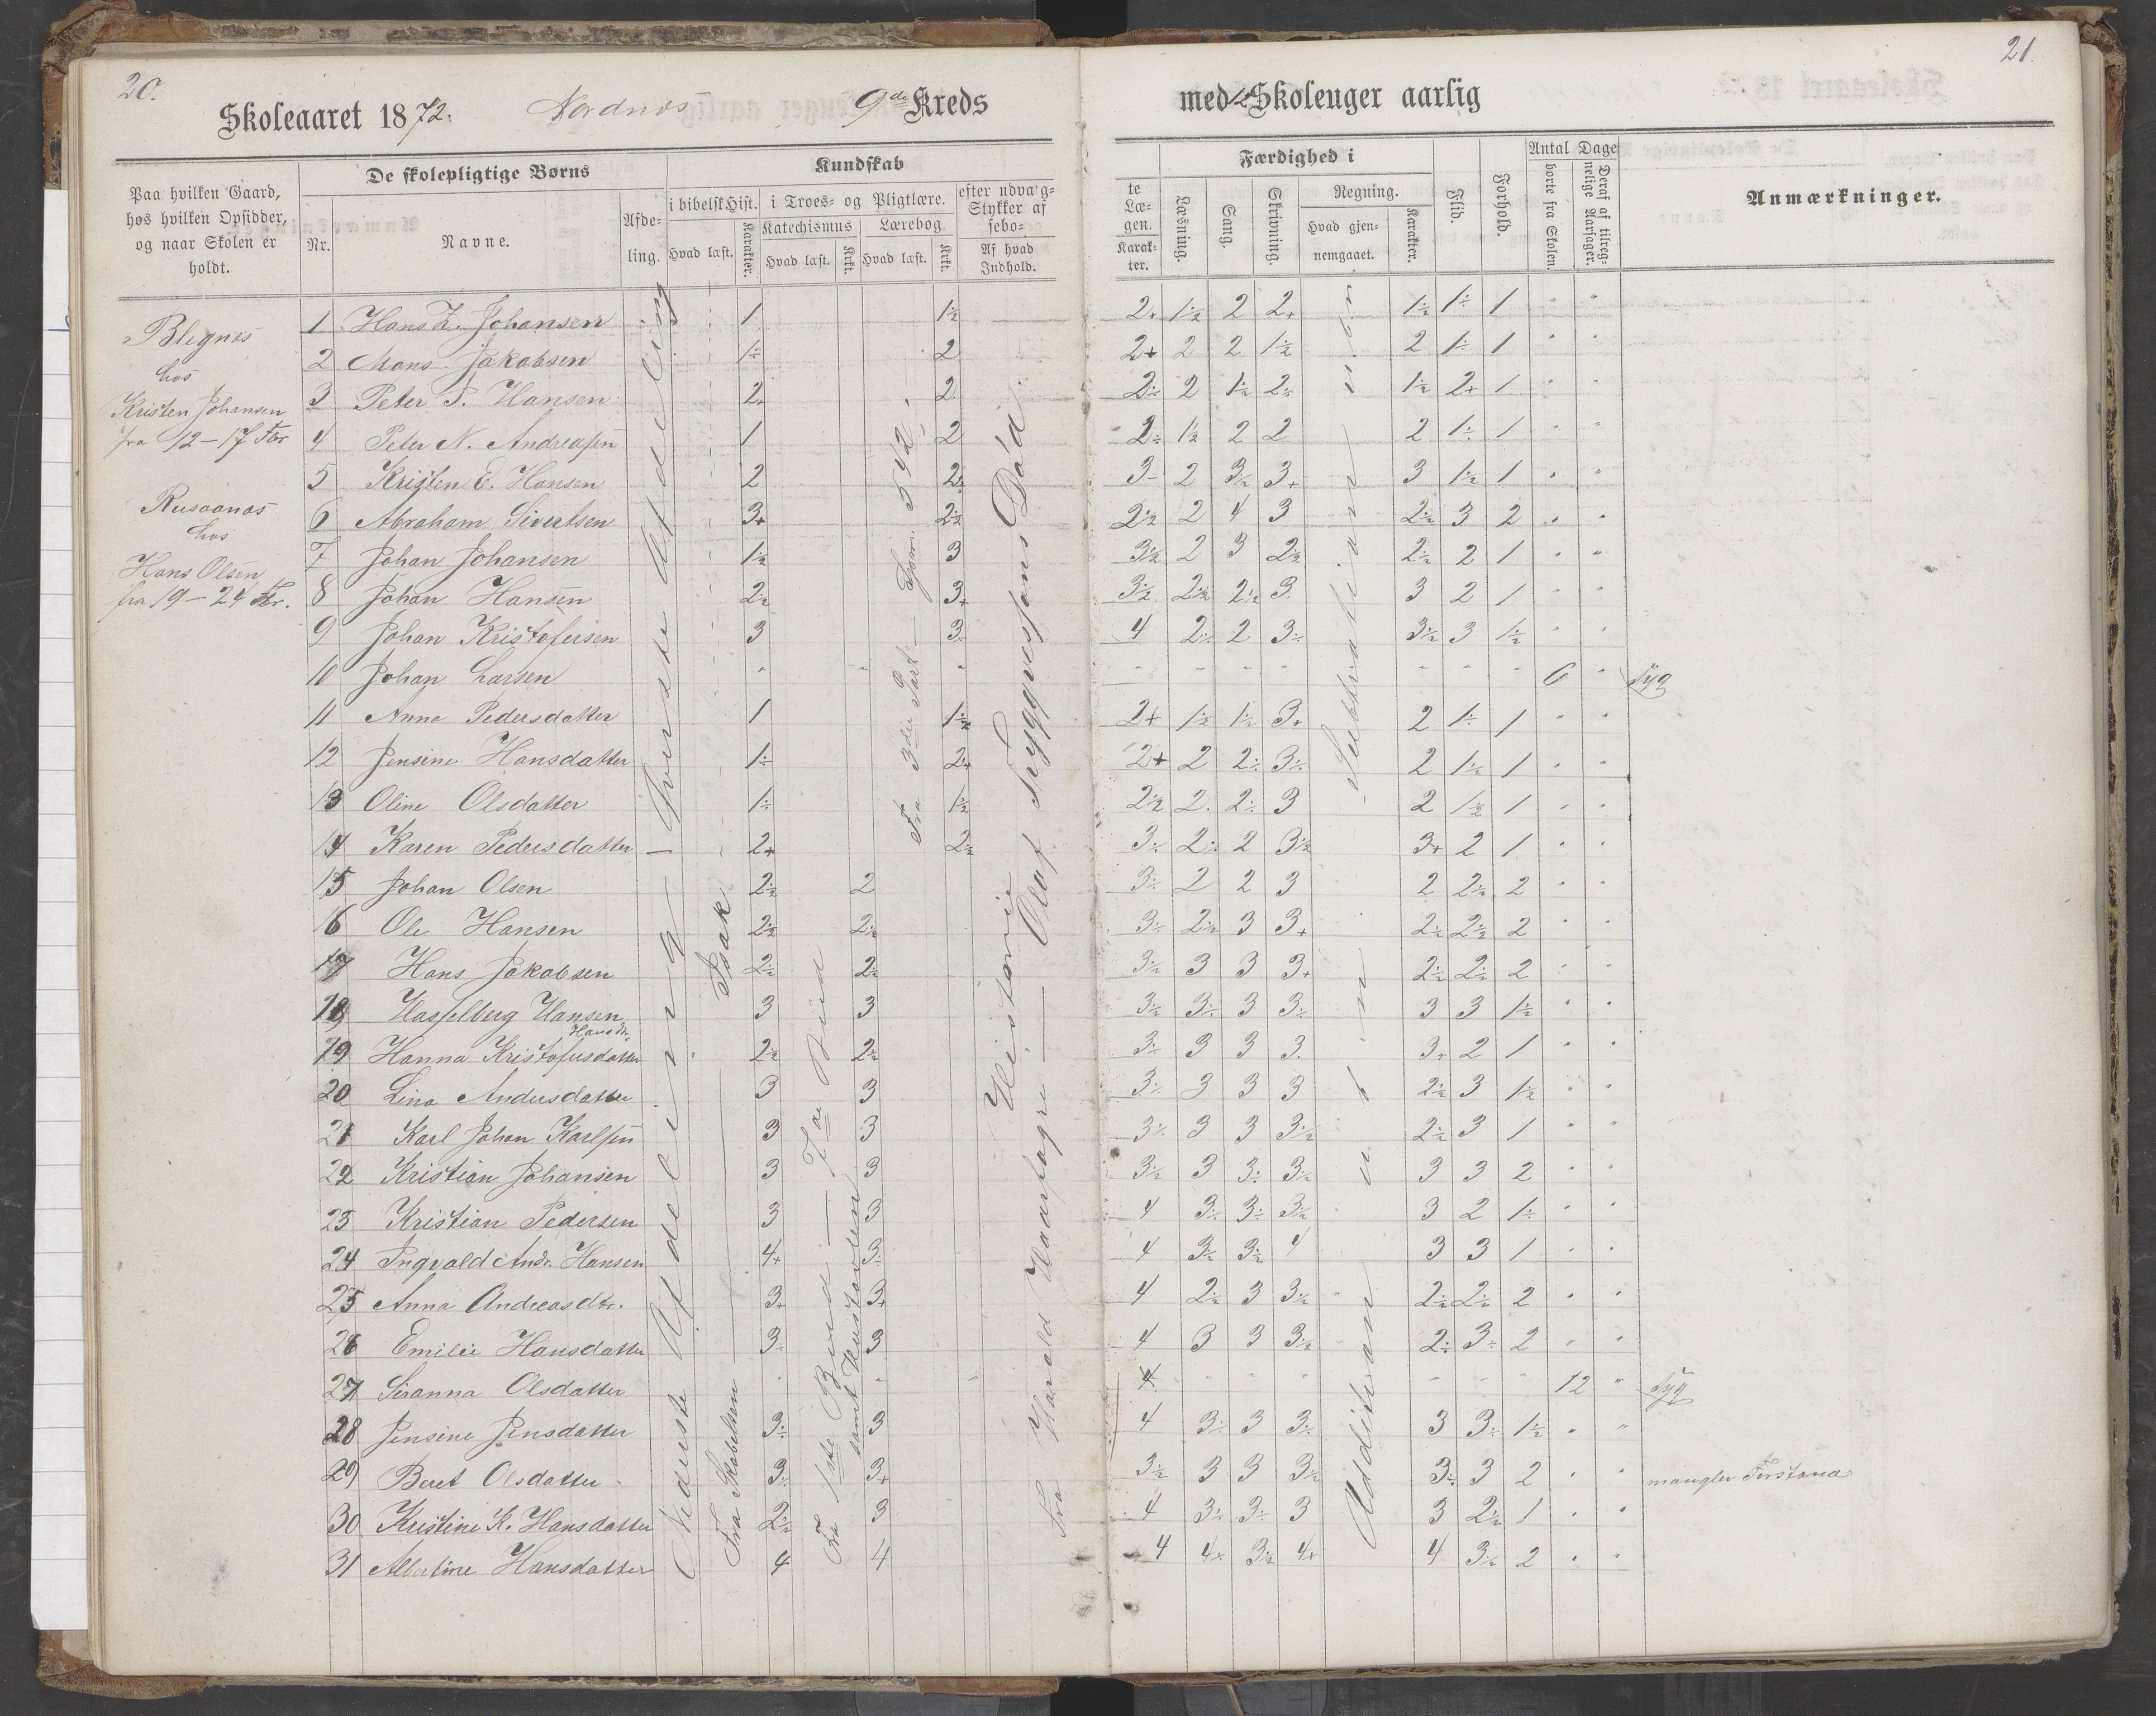 20.
Skoleaaret 1872. Nordnæs 9de Kreds
Paa hvilken Gaard,
hos hvilken Opsidder,
og naar Skolen er
holdt.
De skolepligtige Børns
Nr.
Navne.
Afde-
ling.
Kundskab
i bibelsk Hist.
Hvad læst.
Karakter.
i Troes- og Pligtlære.
Katechismus
Hvad læst.
Krkt.
Lærebog
Hvad læst.
Krkt.
efter udvalg-
Stykker af
sebo-
Af hvad
Indhold.
Blegnæs
hos
Kristen Johansen
fra 12-17 Fbr
Rusaanæs
hos
Hans Olsen
fra 19-24 Fbr.
1 Hans Z. Johansen 1 1÷2
2 Mons Jakobsen 1÷ 2
3 Peter P. Hansen 2+ 2
4 Peter N. Andreasen 1 2
5 Kristen E. Hansen 2 2÷
6 Abraham Sivertsen 3+ 2÷2
7 Johan Johansen 1÷2 3
8 Johan Hansen 2÷2 3+
9 Johan Kristofersen 3 3÷
10 Johan Larsen " " "
11 Anna Pedersdatter 1 1÷2
12 Jensine Hansdatter 1÷ 2+
13 Oline Olsdatter 1÷ 1÷2
14 Karen Pedersdatter 2+ 2÷2
15 Johan Olsen 2÷2 2
16 Ole Hansen 2÷2 2÷2
17 Hans Jakobsen 2÷2 2÷2
18 Hasselberg Hansen 3 3
Hansdr.
19 Hanna Kristofersdatter 2÷2 2÷2
20 Lina Andersdatter 3 3
21 Karl Johan Karlsen 3 3
22 Kristian Johansen 3 3
23 Kristian Pedersen 3 3
24 Ingvald Andr. Hansen 4+ 3÷
25 Anna Andreasdtr. 3+ 3+
26 Emilie Hansdatter 3÷ 3
27 Seranna Olsdatter " "
28 Jensine Jensdatter 3÷ 3
29 Beret Olsdatter 3÷ 3+
30 Kristine K. Hansdatter 2÷2 3
31 Albertine Hansdatter 4 4
Øverste Afdeling
Nederste Afdeling
Fra Skabelsen — Isak
Fra 1ste Bud — 7de Bud
samt Hustavlen
Fra 3die Part
Historie
Fra Harald Haarfagre — Olaf Tryggvessøns Død
21.
med 12 Skoleuger aarlig
te
Læ-
gen.
Karak-
ter.
Færdighed i
Læsning.
Sang.
Skrivning.
Regning.
Hvad gjen-
nemgaaet.
Karakter.
Flid.
Forhold.
Antal Dage
borte fra Skolen.
Deraf af tilreg-
nelige Aarsager.
Anmærkninger.
2+ 1÷2 2 2+ 1÷2 1÷ 1 " "
2+ 2 2 1÷2 2 1÷ 1 " "
2÷ 2 1÷2 2÷ 1÷2 2+ 1 " "
2÷ 1÷2 2 2 2 1÷ 1 " "
3- 2 3÷2 3+ 3 1÷2 1 " "
2÷2 2 4 3 2÷2 3 2 " "
3÷2 2 3 2÷2 2÷2 2 1 " "
3÷2 2÷2 2÷2 3 3 2 1 " "
4 2÷ 2 3÷ 3÷2 3 1÷2 " "
" " " " " " " 6 " syg
2+ 1÷2 1÷2 3+ 2 1÷ 1 " "
2+ 2 2÷ 3÷ 2 1÷2 1 " "
2÷2 2 2÷ 3 2 1÷2 1 " "
3÷ 2÷ 2 3÷2 3+ 2 1 " "
3÷ 2 2 3 2 2÷2 2 " "
3÷ 2÷2 3 3+ 2÷2 2÷2 2 " "
3÷2 3 3 3+ 2÷2 2÷2 2 " "
3÷2 3÷ 3 3÷ 3 3 1÷2 " "
3÷ 3 3 3 3+ 2 1 " "
3÷ 3 3 3 2÷2 3 1÷2 " "
3÷ 3 3 3÷2 2÷2 3 1 " "
3÷2 3 3÷ 3÷2 3 3 2 " "
4 3÷ 3÷ 3÷2 3 2 1÷ " "
4 3÷2 3÷2 4 3 3 1 " "
4 2÷2 3 3÷2 2÷2 2÷2 2 " "
4 3 3 3÷2 2÷ 3÷ 2 " "
4 " " " " " " 12 " syg
4 3÷ 3 3÷ 3 3÷ 1÷2 " "
3÷2 3 3 3÷2 3÷ 3 2 " " mangler Forstand
4 3÷ 3÷ 3 3 2÷2 1 " "
4 4+ 3÷2 4+ 4 3÷2 2 " "
Subtraktionen
Additionen